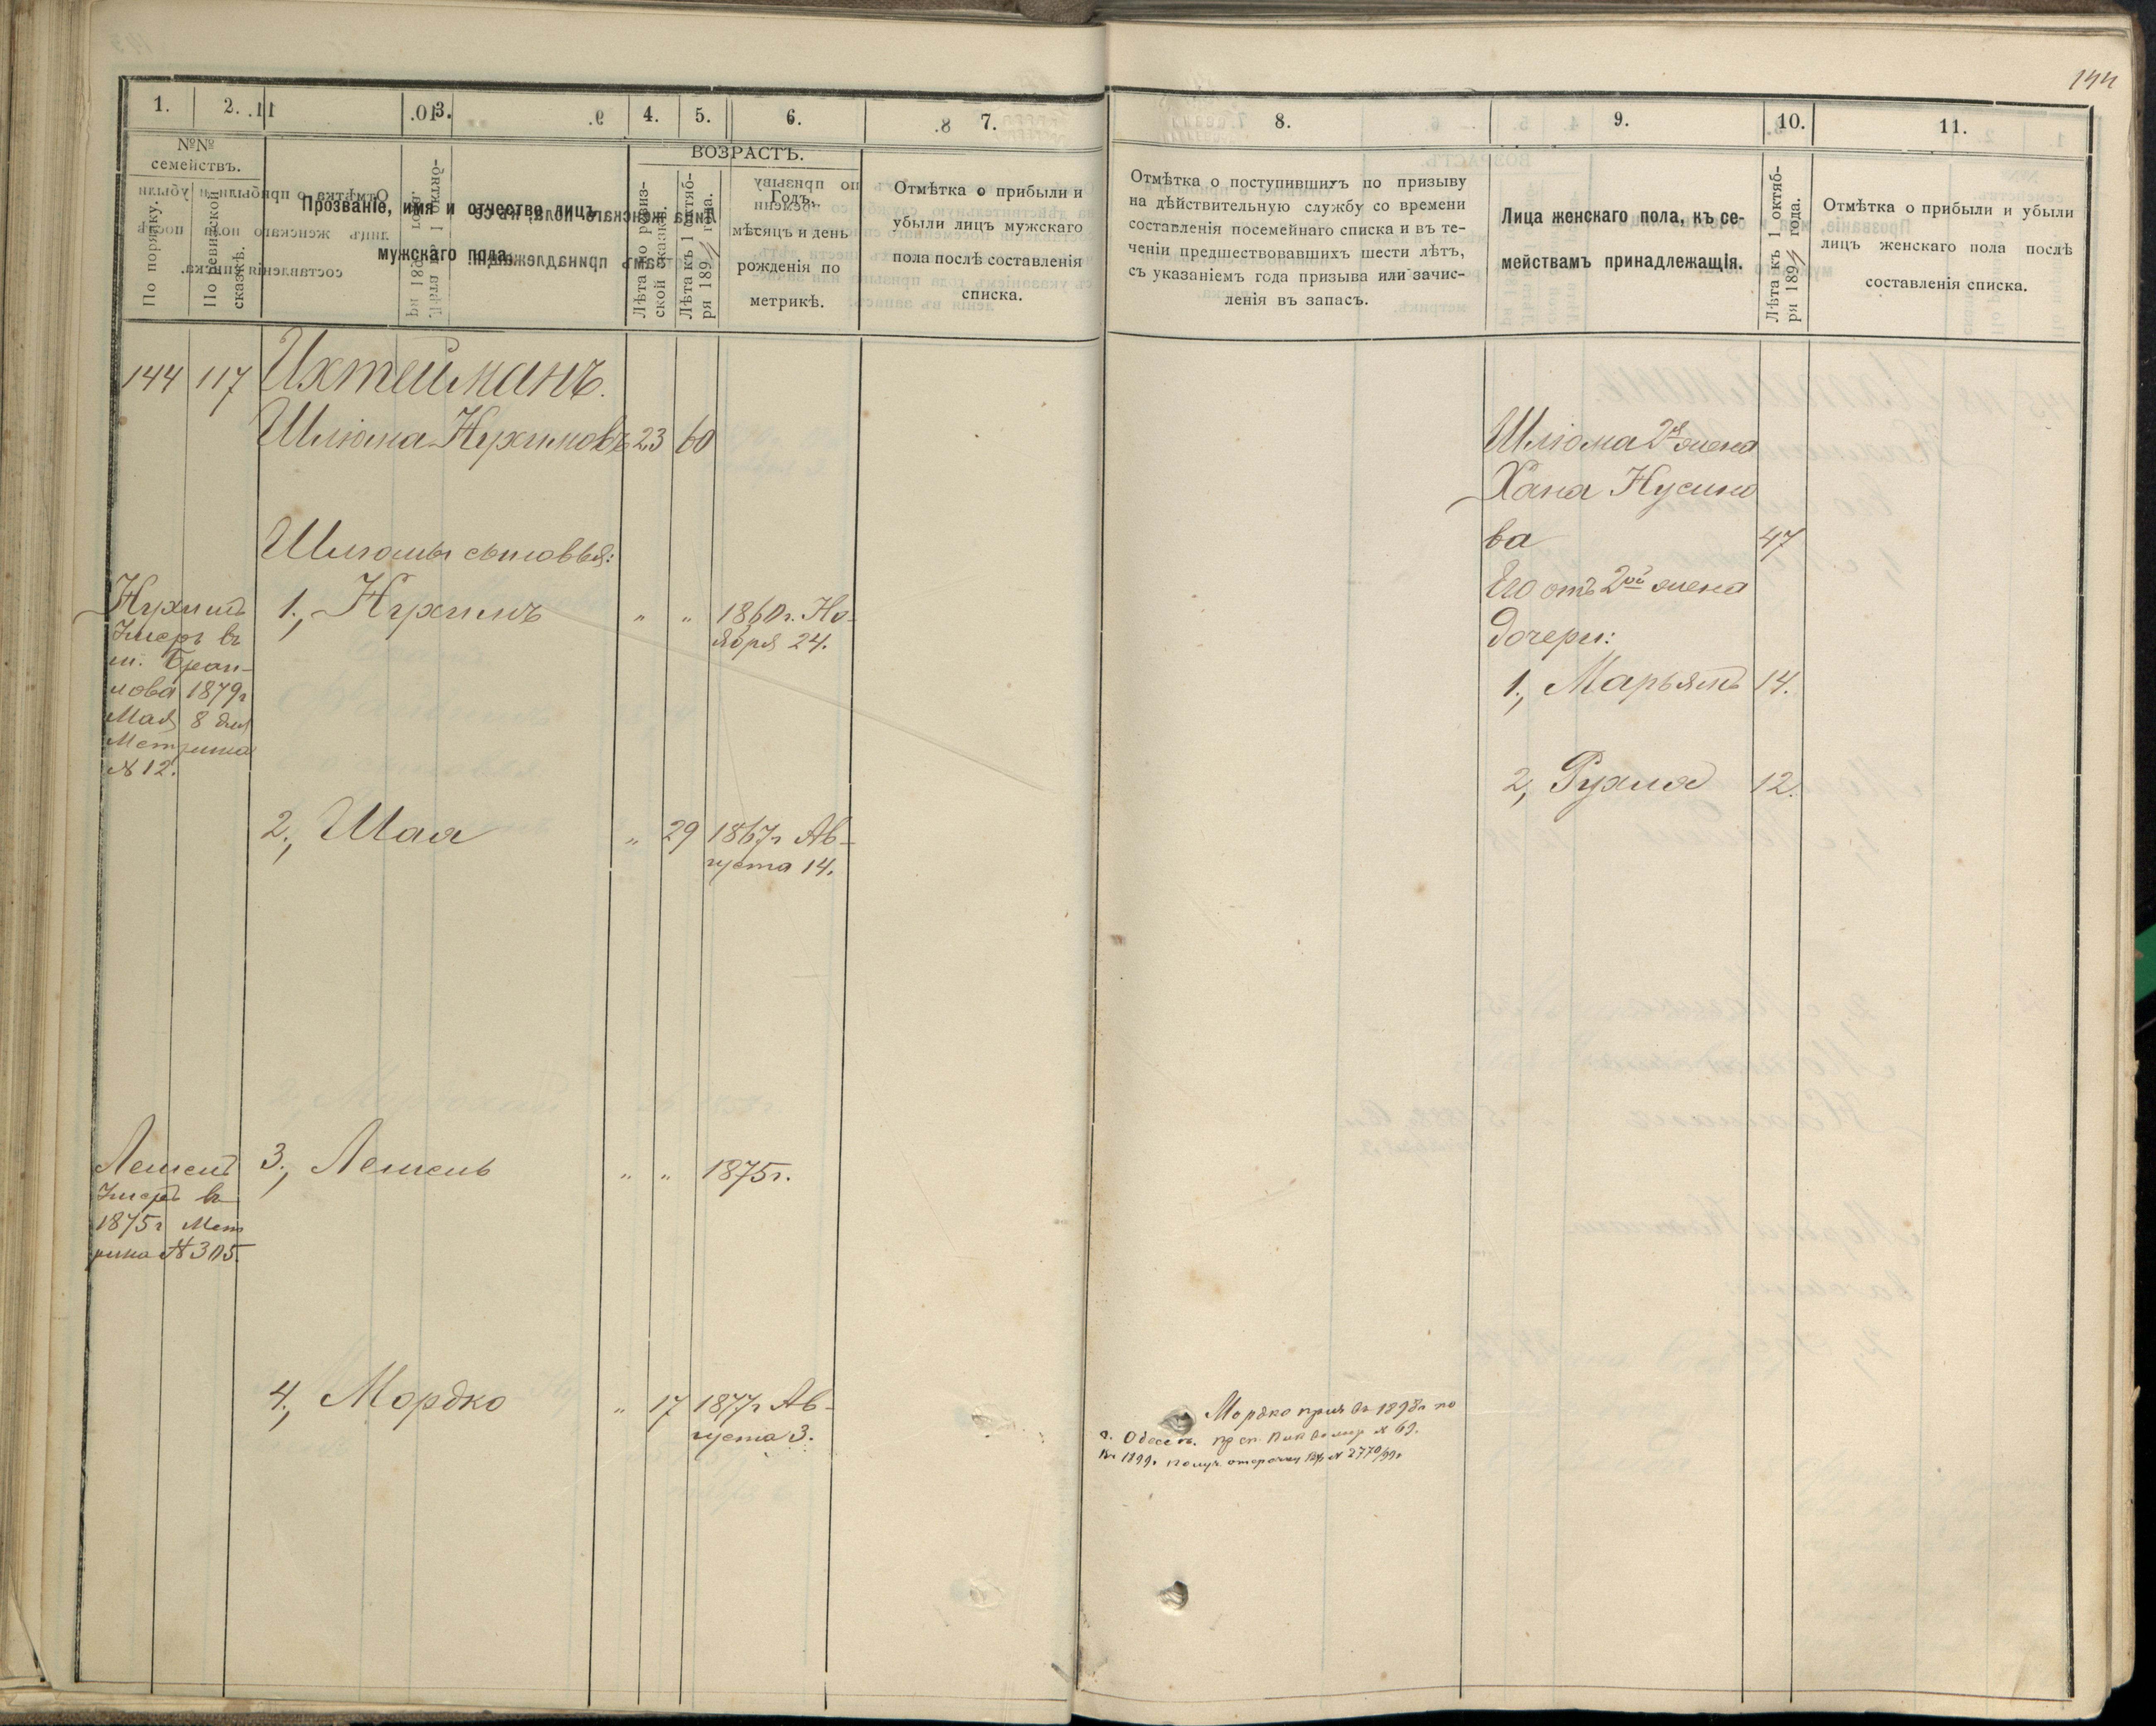 144
1. 2. 3. 4. 5. 6. 7.
№№ семействъ.
По порядку.
По ревизской сказкѣ.
Прозваніе, имя и отчество лицъ
мужскаго пола.
ВОЗРАСТЪ.
Лѣта по ревиз-
ской сказкѣ.
Лѣта къ 1 октяб-
ря 189 года.
Годъ,
мѣсяцъ и день
рожденія по
метрикѣ.
Отмѣтка о прибыли и
убыли лицъ мужскаго
пола послѣ составленія
списка.
144 117 Ихтейманъ.
Шліома Нухимовъ 23 60
Шліомы сыновья:
1., Нухимъ " " 1860 г. Но-
ября 24.
Нухимъ
Умеръ въ
1879 г
Мая 8 дня
Метрика
№ 12.
2., Шая " 29 1867 г Ав-
густа 14.
3., Лемель " " 1875 г.
Умеръ въ
1875 г Мет
рика № 305.
4., Мордко " 17 1877 г Ав-
густа 3.
8. 9. 10. 11.
Отмѣтка о поступившихъ по призыву
на дѣйствительную службу со времени
составленія посемейнаго списка и въ те-
ченіи предшествовавшихъ шести лѣтъ,
съ указаніемъ года призыва или зачис-
ленія въ запасъ.
Лица женскаго пола, къ се-
мействамъ принадлежащія.
Лѣта къ 1 октяб-
ря 189 года.
Отмѣтка о прибыли и убыли
лицъ женскаго пола послѣ
составленія списка.
Шліома 2я жена
Хана Нусино
ва 47
Его отъ 2ой жены
дочери:
1., Марьямъ 14.
2, Рухля 12.
Мордко въ 1898 г по
г. Одессѣ. № 69.
1899 г получ. отсрочку № 2770/99 г